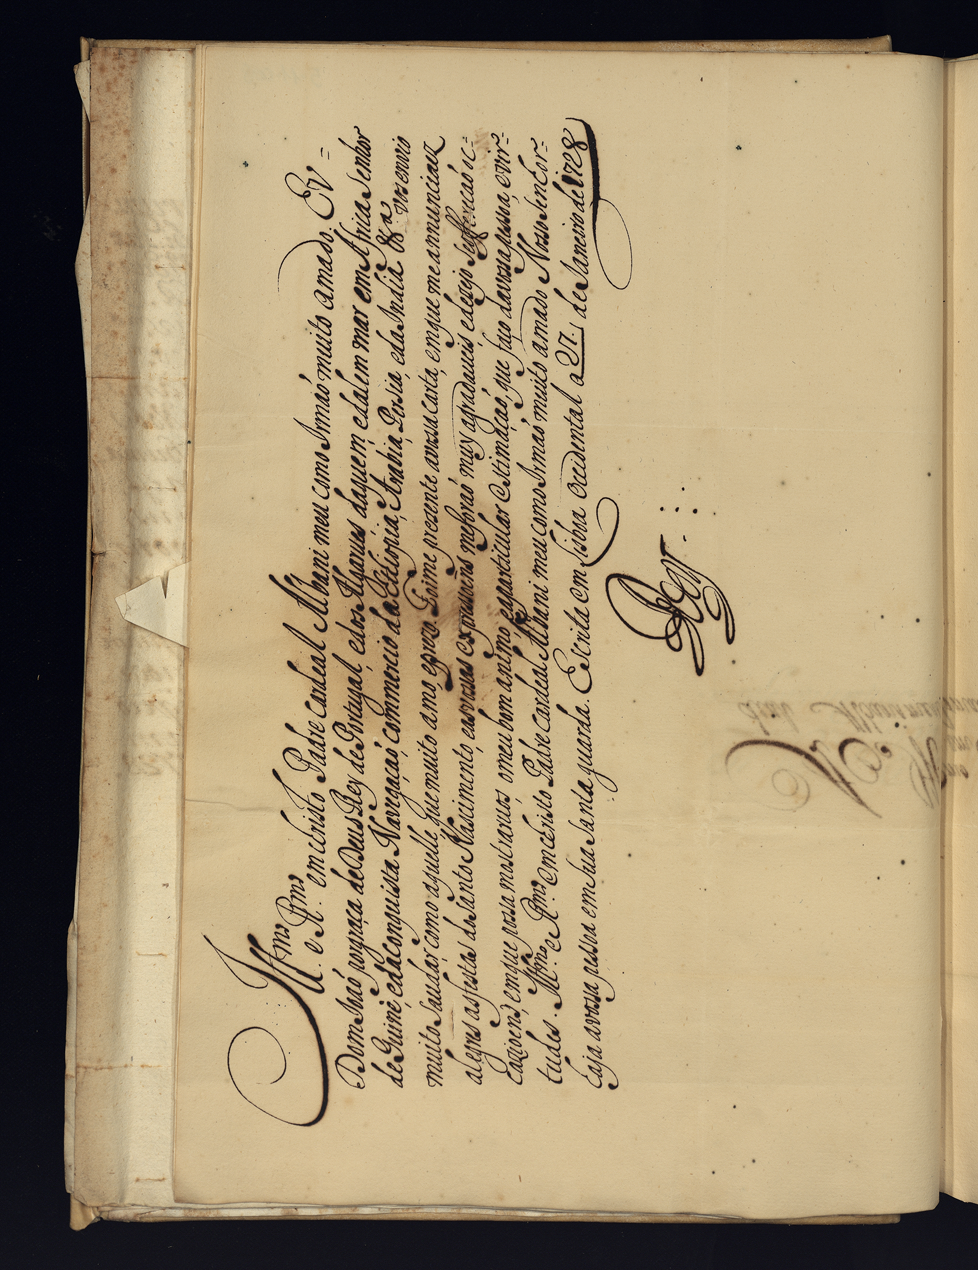 Ill.mo e R.mo em christo Padre Cardeal Albani meu como Irmaõ muito amado. Ev=
Dom Joaõ por graça de Deus Rey de Portugal, e dos Algarues, daquem, e dalem mar em Africa Senhor
de Guiné, e da conquista, Navegaçaõ, commercio da Ethiopia, Arabia, Persia, e da India &.a vos envio
muito Saudar, como aquelle, que muito amo, e prezo. Foime prezente a vossa carta, em que me annunciaez
alegres as festas do Santo Nascimento, e as vossas expressoẽs me foraõ muy agradaueis, e dezejo se offereçaõ oc=
cazioens, em que possa mostraruos o meu bom animo, e a particular estimaçaõ, que faço da vossa pessoa, e vir=
tudes. Ill.mo e R.mo em christo Padre Cardeal Albani meu como Irmaõ muito amado Nosso Senhor
haja a vossa pessoa em sua Santa guarda. Escrita em Lisboa Occidental a 27. de Janeiro de 1728
Rey